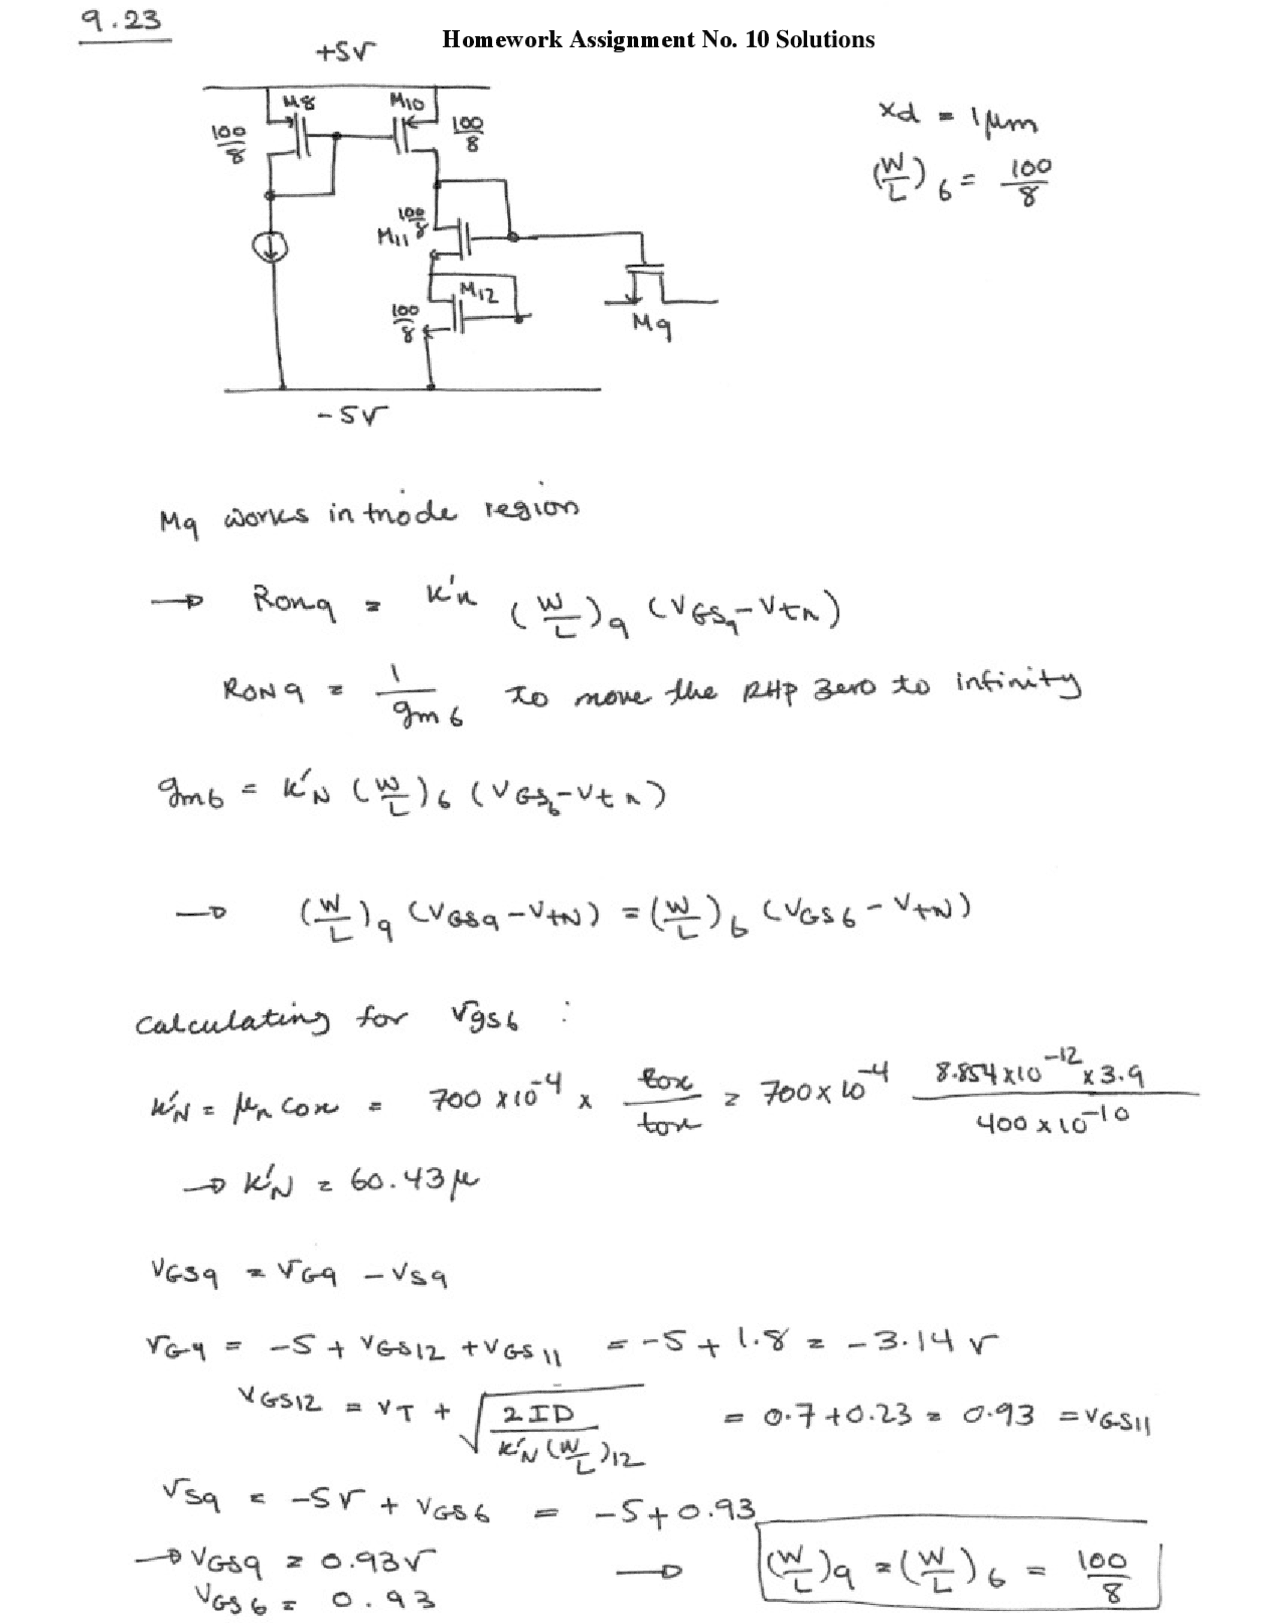 9.23
Homework Assignment No. 10 Solutions
+5V
M8
M10
100/8
100/8
xd = 1μm
(W/L)6 = 100/8
100/8
M11
M12
100/8
M9
-5V
M9 works in triode region
→ Ron9 = K'n (W/L)9 (VGS9 - Vtn)
RON9 = 1/gm6 to move the RHP zero to infinity
gm6 = K'N (W/L)6 (VGS6 - Vtn)
→ (W/L)9 (VGS9 - VtN) = (W/L)6 (VGS6 - VtN)
Calculating for Vgs6 :
K'N = μn Cox = 700 x10^-4 x εox/tox = 700 x 10^-4 8.854x10^-12 x 3.9 / 400 x 10^-10
→ K'N = 60.43μ
VGS9 = VG9 - VS9
VG9 = -5 + VGS12 + VGS11 = -5 + 1.8 = -3.14 V
VGS12 = VT + √(2ID / K'N (W/L)12) = 0.7 + 0.23 = 0.93 = VGS11
VS9 = -5V + VGS6 = -5 + 0.93
→ VGS9 = 0.93V → (W/L)9 = (W/L)6 = 100/8
VGS6 = 0.93